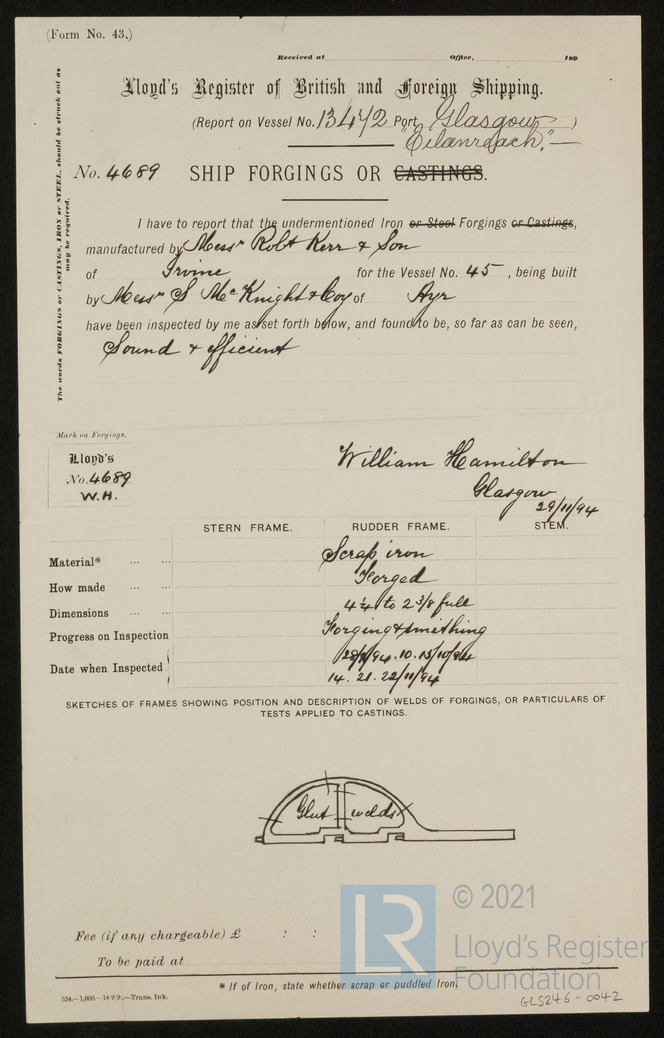 (Form No. 43.)
Received at Office, 189
Lloyd's Register of British and Foreign Shipping.
(Report on Vessel No. 13472 Port Glasgow )
"Eilanreach."
No. 4689 SHIP FORGINGS OR CASTINGS.
The words FORGINGS or CASTINGS, IRON or STEEL, should be struck out as
may be required.
I have to report that the undermentioned Iron or Steel Forgings or Castings,
manufactured by Messrs Robt Kerr & Son
of Irvine for the Vessel No. 45, being built
by Messrs S. McKnight & Coy of Ayr
have been inspected by me as set forth below, and found to be, so far as can be seen,
Sound & efficient
Mark on Forgings.
Lloyd's
No. 4689
W.H.
William Hamilton
Glasgow
29/11/94
STERN FRAME. RUDDER FRAME. STEM.
Material* ... ... Scrap iron
How made ... ... Forged
Dimensions ... ... 4¼ to 2 3/8 full
Progress on Inspection Forging & smithing
Date when Inspected 94. 10. 15/10/94
14. 21. 22/11/94
SKETCHES OF FRAMES SHOWING POSITION AND DESCRIPTION OF WELDS OF FORGINGS, OR PARTICULARS OF
TESTS APPLIED TO CASTINGS.
Glut welds
Fee (if any chargeable) £ : :
To be paid at
* If of Iron, state whether scrap or puddled Iron.
Trans. Ink.
GLS246-0042
LR © 2021
Lloyd's Register
Foundation